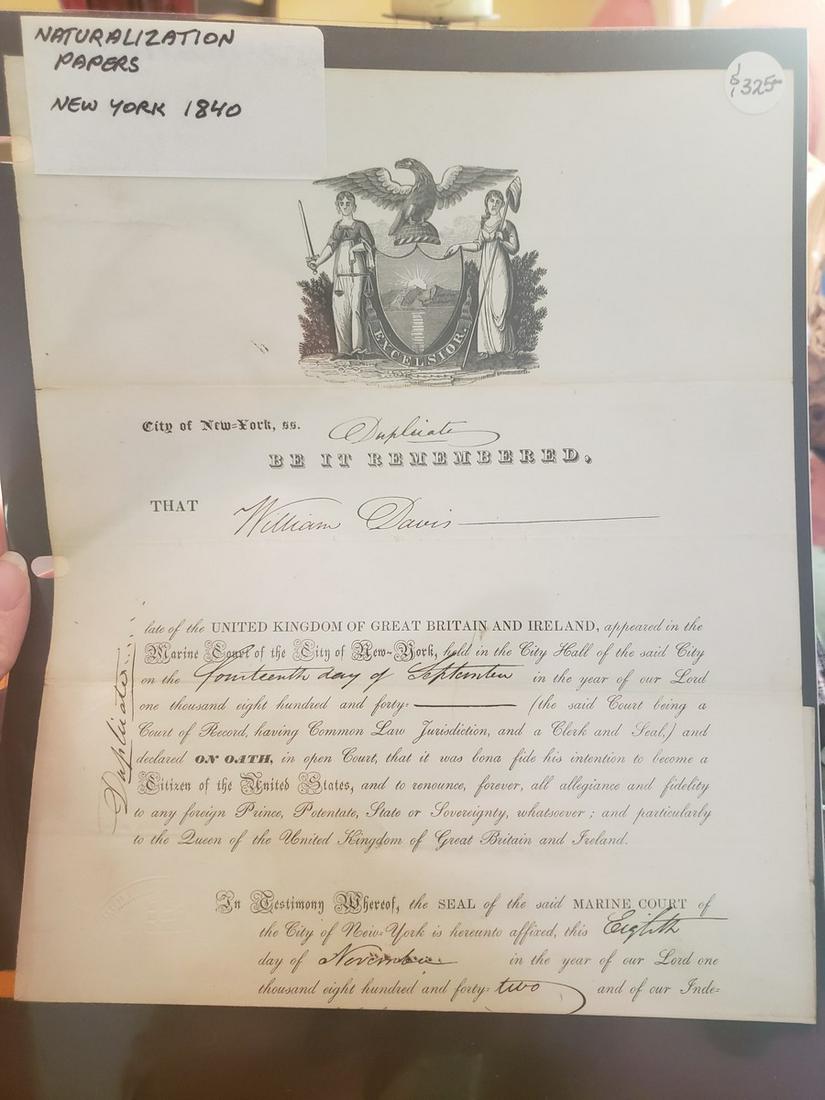 NATURALIZATION
PAPERS
NEW YORK 1840
$325
EXCELSIOR.
City of New=York, ss.
Duplicate
BE IT REMEMBERED,
THAT William Davis
late of the UNITED KINGDOM OF GREAT BRITAIN AND IRELAND, appeared in the
Marine Court of the City of New-York, held in the City Hall of the said City
on the fourteenth day of September in the year of our Lord
one thousand eight hundred and forty= (the said Court being a
Court of Record, having Common Law Jurisdiction, and a Clerk and Seal,) and
declared ON OATH, in open Court, that it was bona fide his intention to become a
Citizen of the United States, and to renounce, forever, all allegiance and fidelity
to any foreign Prince, Potentate, State or Sovereignty, whatsoever; and particularly
to the Queen of the United Kingdom of Great Britain and Ireland.
Duplicate
In Testimony Whereof, the SEAL of the said MARINE COURT of
the City of New=York is hereunto affixed, this Eighth
day of November in the year of our Lord one
thousand eight hundred and forty=two and of our Inde=